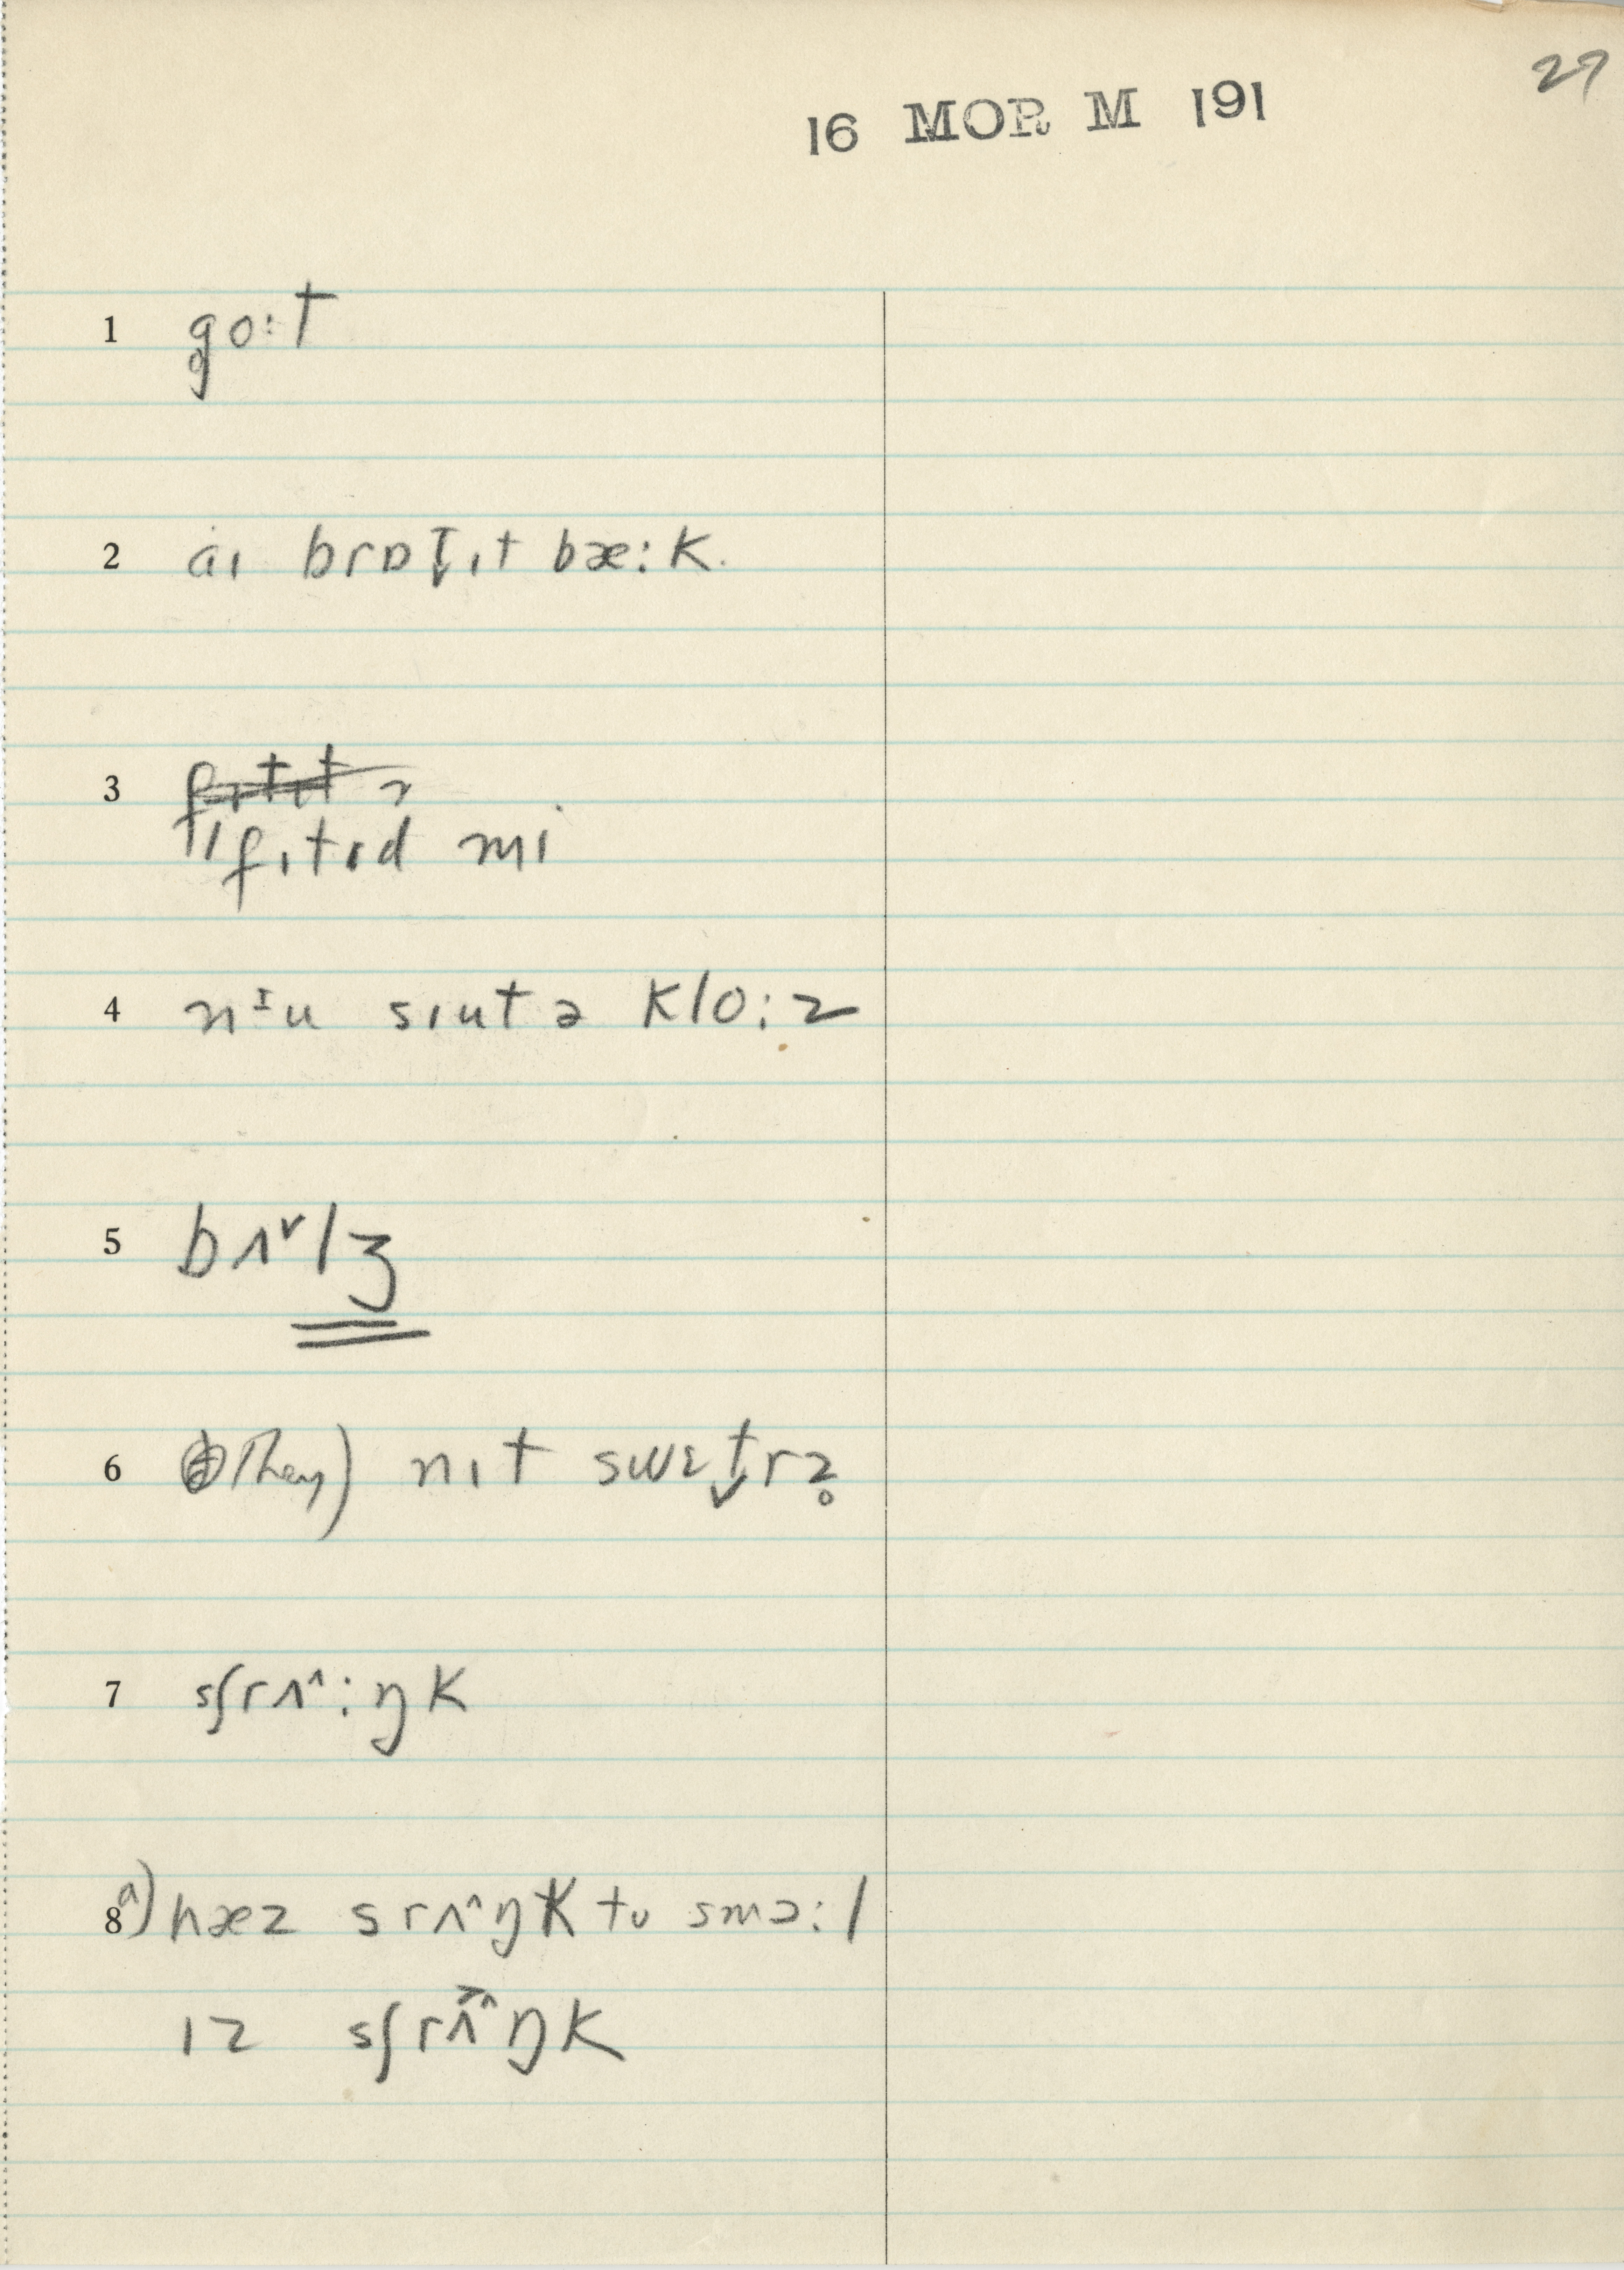 27
16 MOR M 191
1 g̥o:t
2 a̍ɪ brɒt̬ ɪt bæ:k.
3 fɪtɪt ə
// fɪtɪd mi
4 nᶦu sɪut ə klo:z
5 bʌ˅lʒ
6 They) nɪt swɛt̬rz̥
7 sʃrʌ^:ŋk
8 a) hæz srʌ^ŋk tu smɔ:l
ɪz sʃrʌ^ŋk